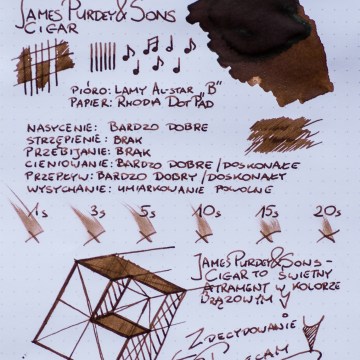 James Purdey & Sons
Cigar
Pióro: Lamy Al-Star "B"
Papier: Rhodia DotPad
Nasycenie: Bardzo dobre
Strzępienie: Brak
Przebijanie: Brak
Cieniowanie: Bardzo dobre/doskonałe
Przepływ: Bardzo dobry/doskonały
Wysychanie: umiarkowanie powolne
1s 3s 5s 10s 15s 20s
James Purdey & Sons -
Cigar to świetny
atrament w kolorze
brązowym
Zdecydowanie